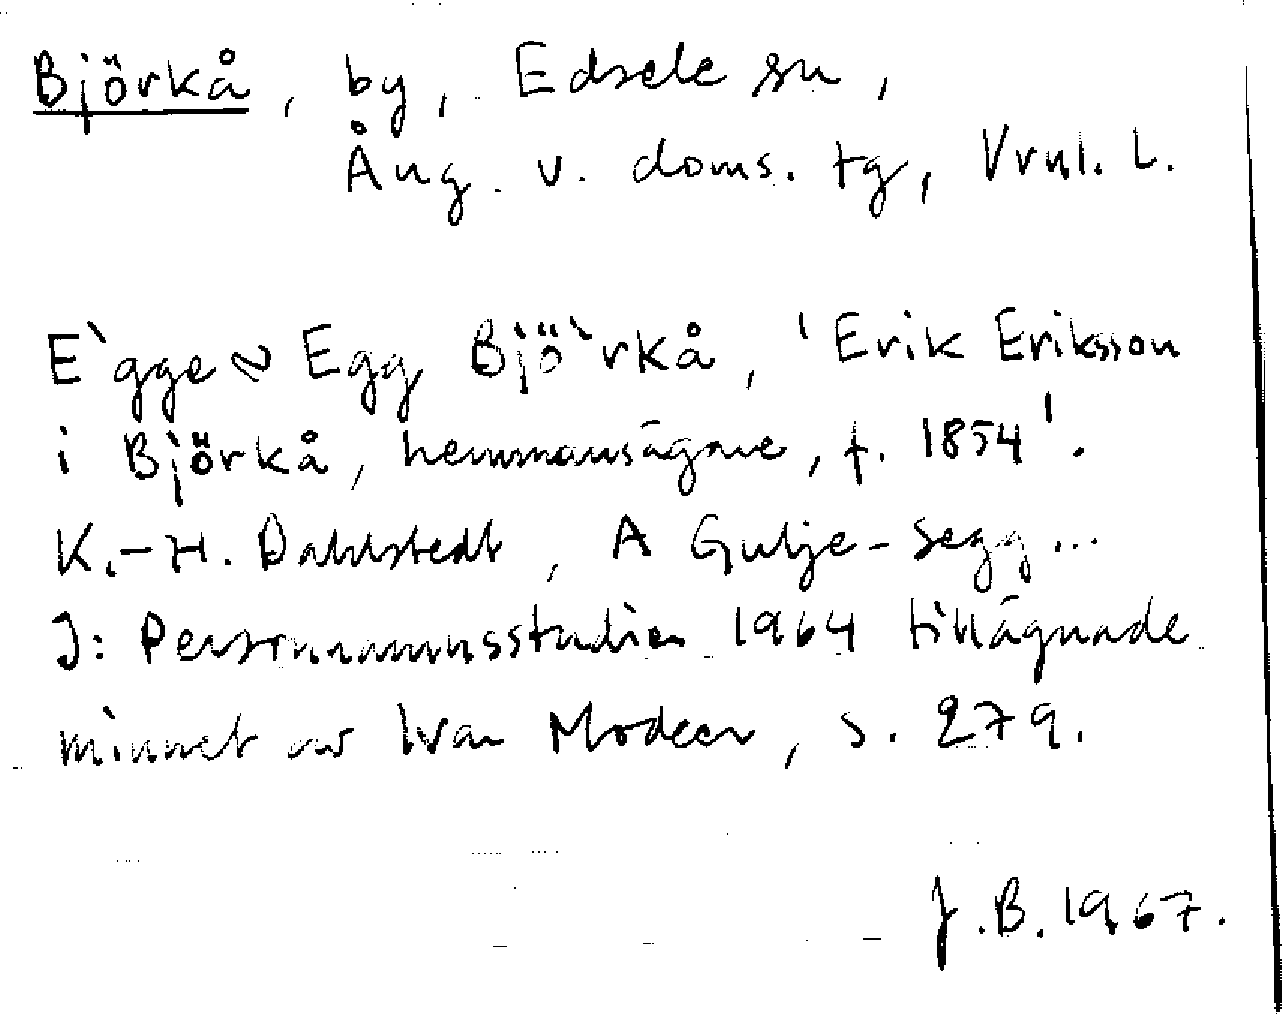 Björkå, by, Edsele sn,
Ång. v. doms. tg, Vrnl. L.
E`gge ~ Egg Bjö`rkå, 'Erik Eriksson
i Björkå, hemmansägare, f. 1854'.
K.-H. Dahlstedt, A Gulje-Segg...
I: Personnamnsstudier 1964 tillägnade
minnet av Ivar Modéer, s. 279.
J.B. 1967.